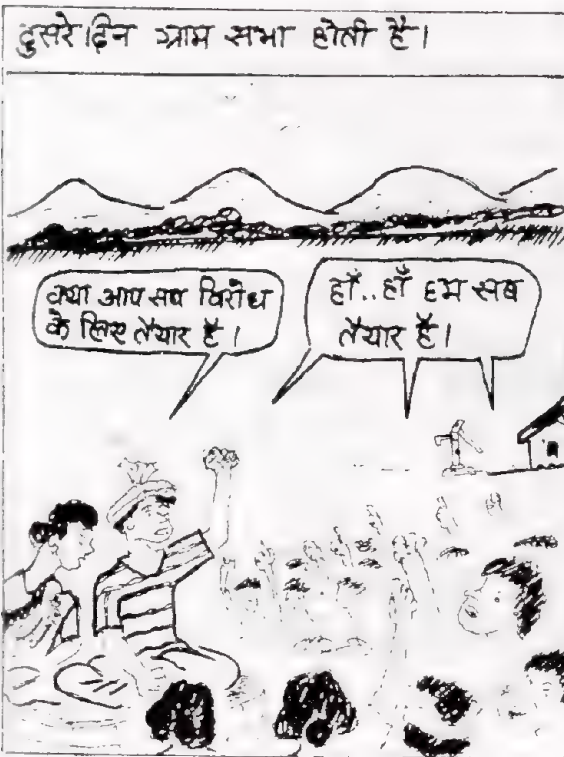 दुसरे दिन ग्राम सभा होती है।
क्या आप सब विरोध
के लिए तैयार है।
हाँ..हाँ हम सब
तैयार है।